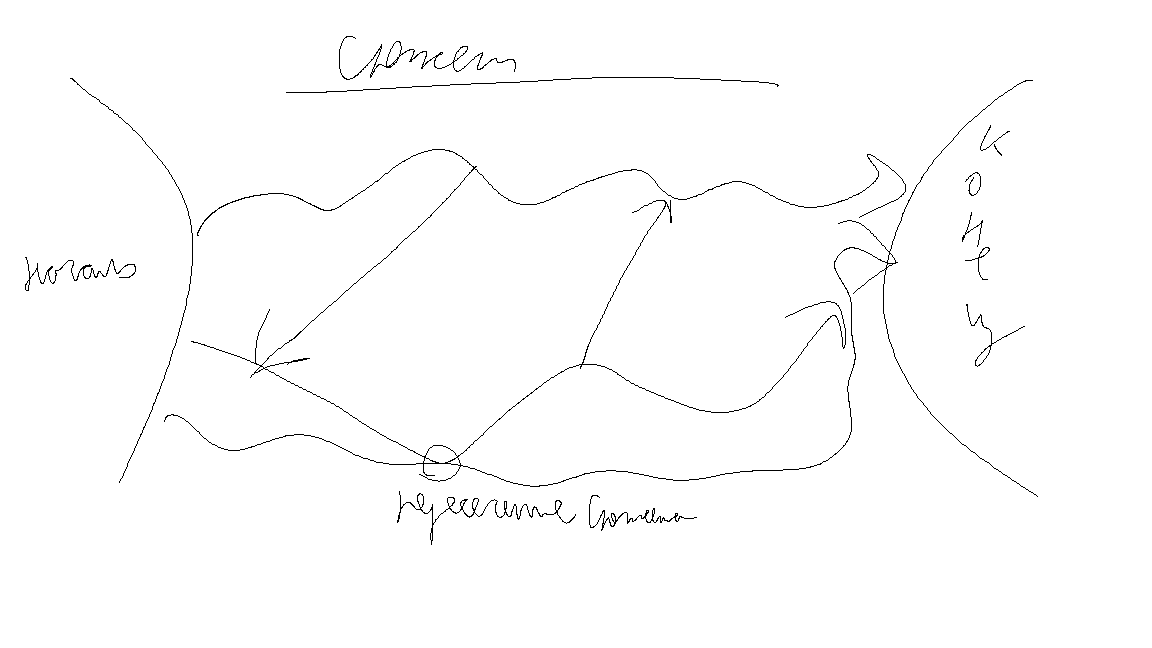 Сюжеты
Начало
Конец
Пересечение Сюжета